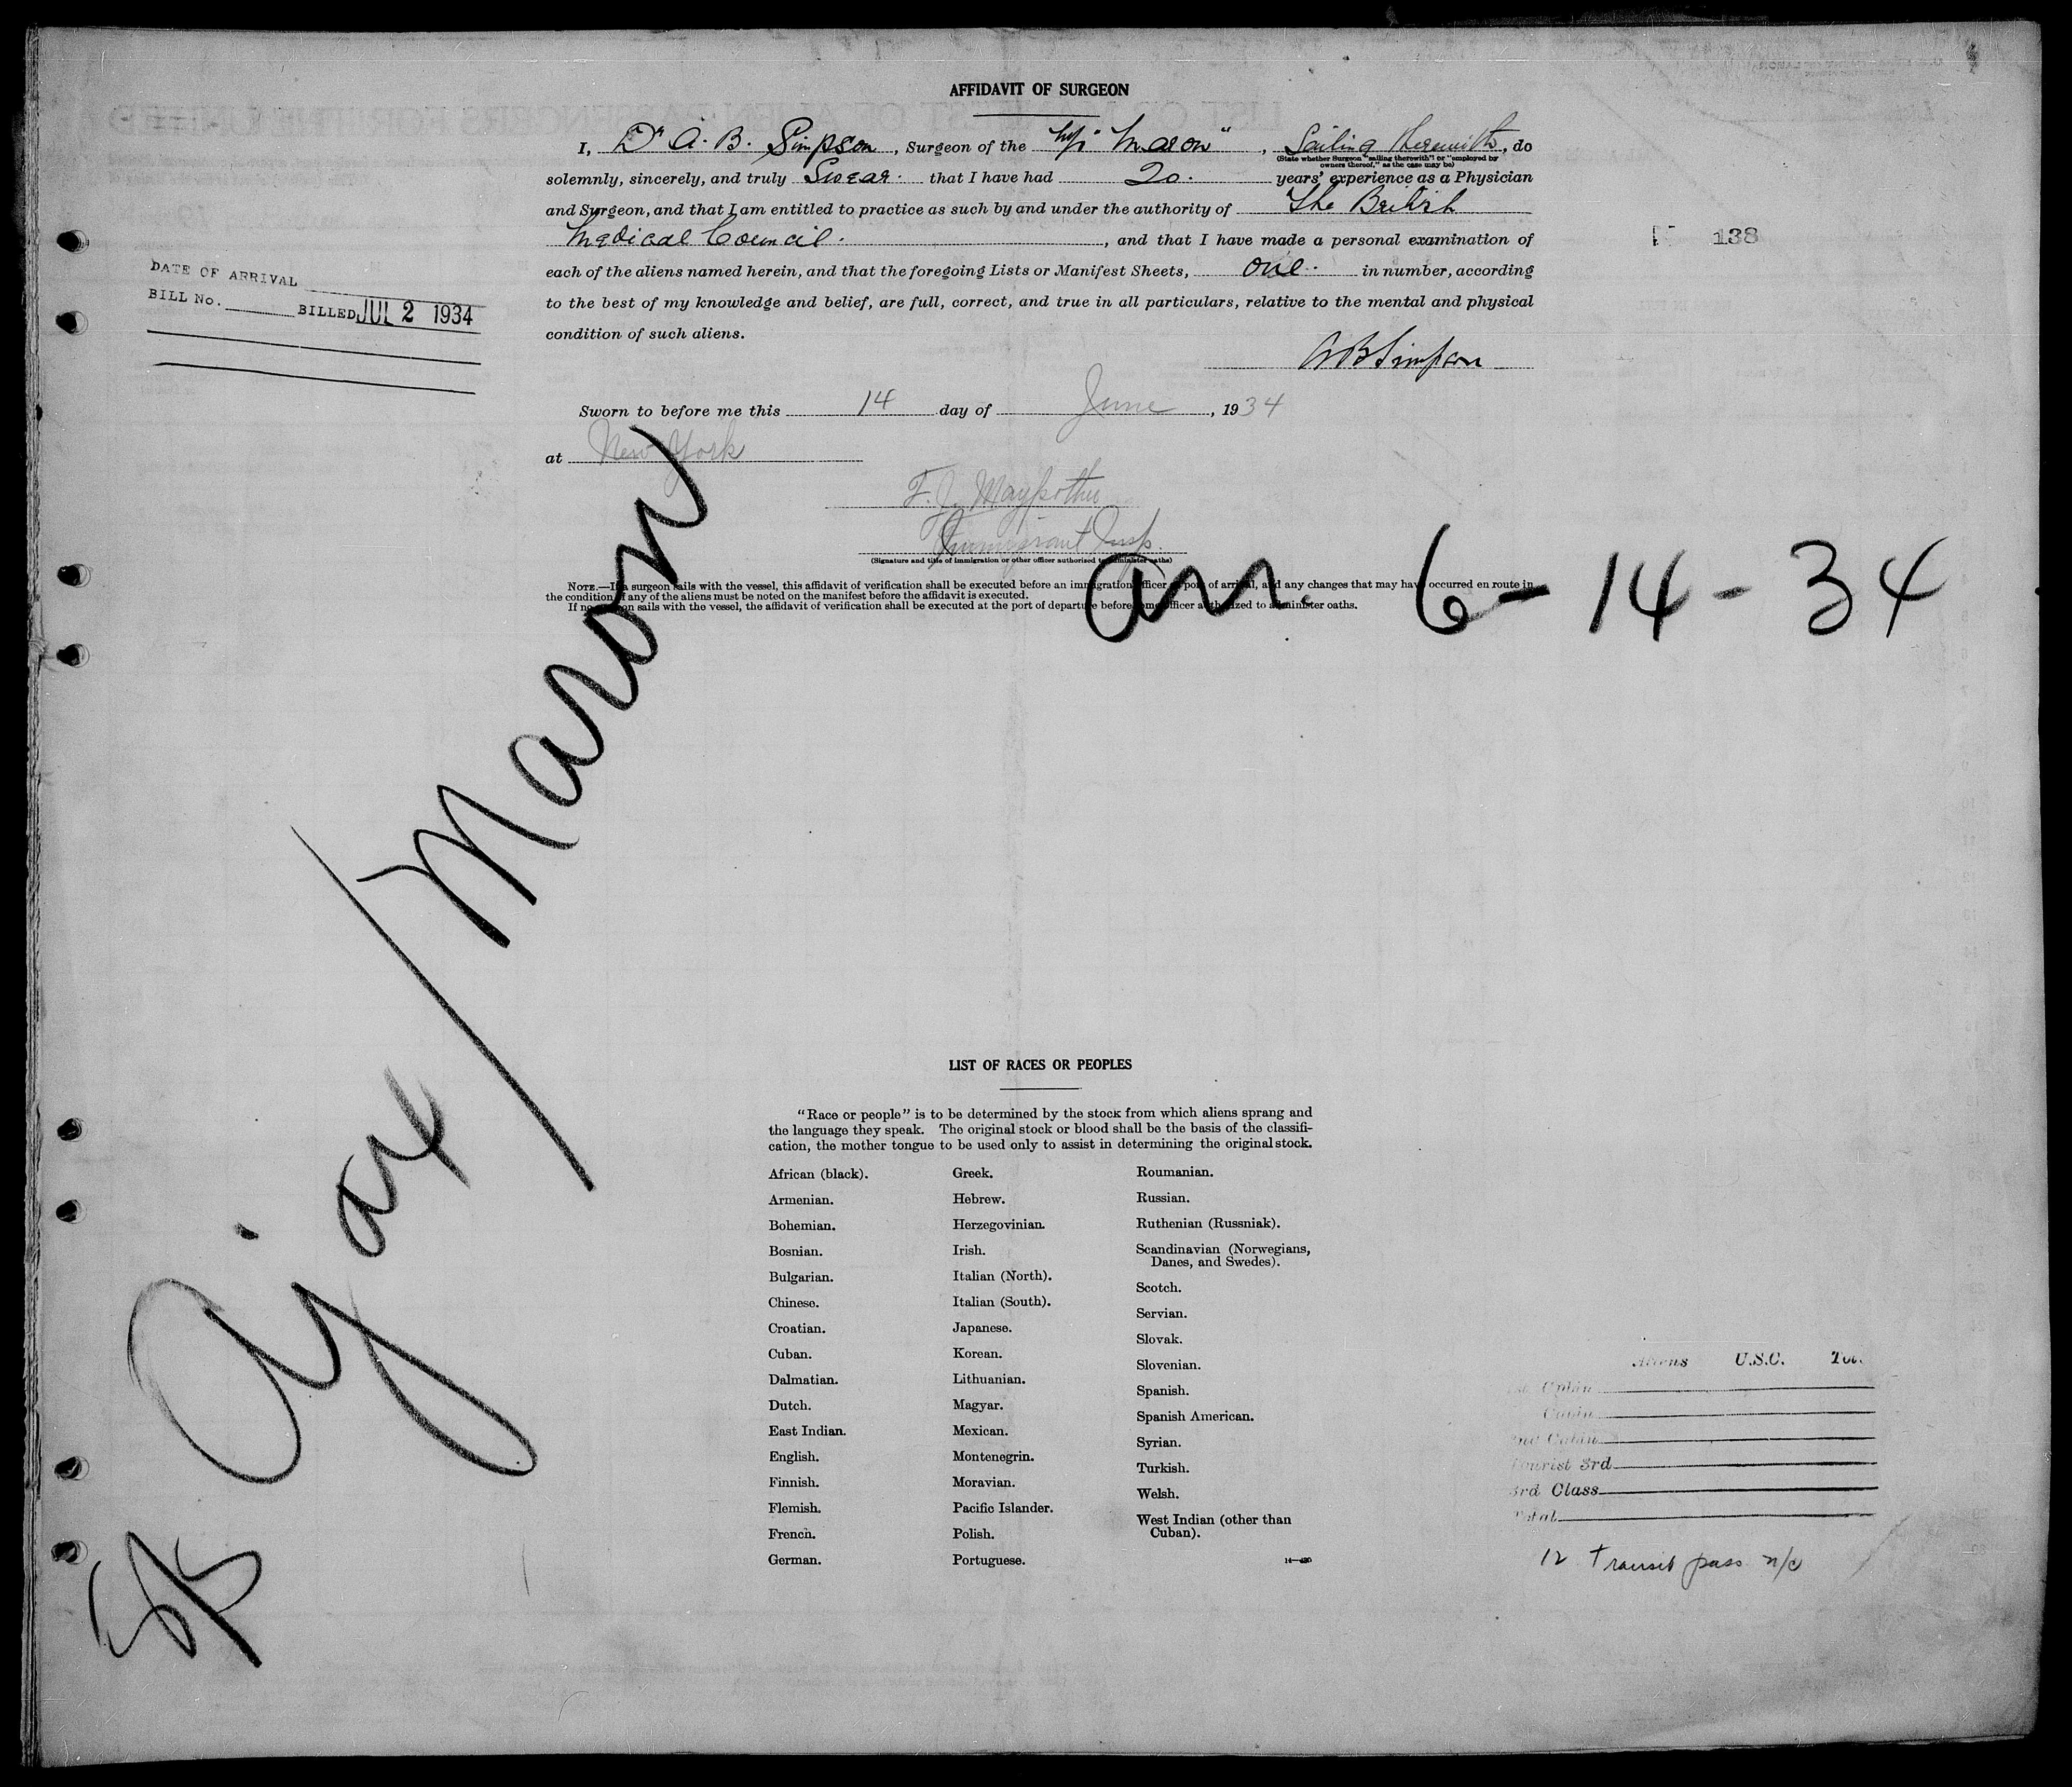 AFFIDAVIT OF SURGEON
I, Dr A. B. Simpson, Surgeon of the M/S "Maron", Sailing therewith, do
(State whether Surgeon "sailing therewith" or "employed by
owners thereof," as the case may be)
solemnly, sincerely, and truly Swear. that I have had 20. years' experience as a Physician
and Surgeon, and that I am entitled to practice as such by and under the authority of The British
Medical Council. , and that I have made a personal examination of
each of the aliens named herein, and that the foregoing Lists or Manifest Sheets, one. in number, according
to the best of my knowledge and belief, are full, correct, and true in all particulars, relative to the mental and physical
condition of such aliens.
138
DATE OF ARRIVAL
BILL No. BILLED JUL 2 1934
A B Simpson
Sworn to before me this 14 day of June, 1934
at New York
F. J. Maypother
Immigrant Insp.
(Signature and title of immigration or other officer authorized to administer oaths)
NOTE.—If a surgeon sails with the vessel, this affidavit of verification shall be executed before an immigration officer at port of arrival, and any changes that may have occurred en route in
the condition of any of the aliens must be noted on the manifest before the affidavit is executed.
If no surgeon sails with the vessel, the affidavit of verification shall be executed at the port of departure before some officer authorized to administer oaths.
arr. 6-14-34
Ajax/Maron
LIST OF RACES OR PEOPLES
"Race or people" is to be determined by the stock from which aliens sprang and
the language they speak. The original stock or blood shall be the basis of the classifi-
cation, the mother tongue to be used only to assist in determining the original stock.
African (black).
Armenian.
Bohemian.
Bosnian.
Bulgarian.
Chinese.
Croatian.
Cuban.
Dalmatian.
Dutch.
East Indian.
English.
Finnish.
Flemish.
French.
German.
Greek.
Hebrew.
Herzegovinian.
Irish.
Italian (North).
Italian (South).
Japanese.
Korean.
Lithuanian.
Magyar.
Mexican.
Montenegrin.
Moravian.
Pacific Islander.
Polish.
Portuguese.
Roumanian.
Russian.
Ruthenian (Russniak).
Scandinavian (Norwegians,
Danes, and Swedes).
Scotch.
Servian.
Slovak.
Slovenian.
Spanish.
Spanish American.
Syrian.
Turkish.
Welsh.
West Indian (other than
Cuban).
Aliens U.S.C. Tot.
Cabin
Cabin
2nd Cabin
Tourist 3rd
3rd Class
Total
12 Transit pass n/c